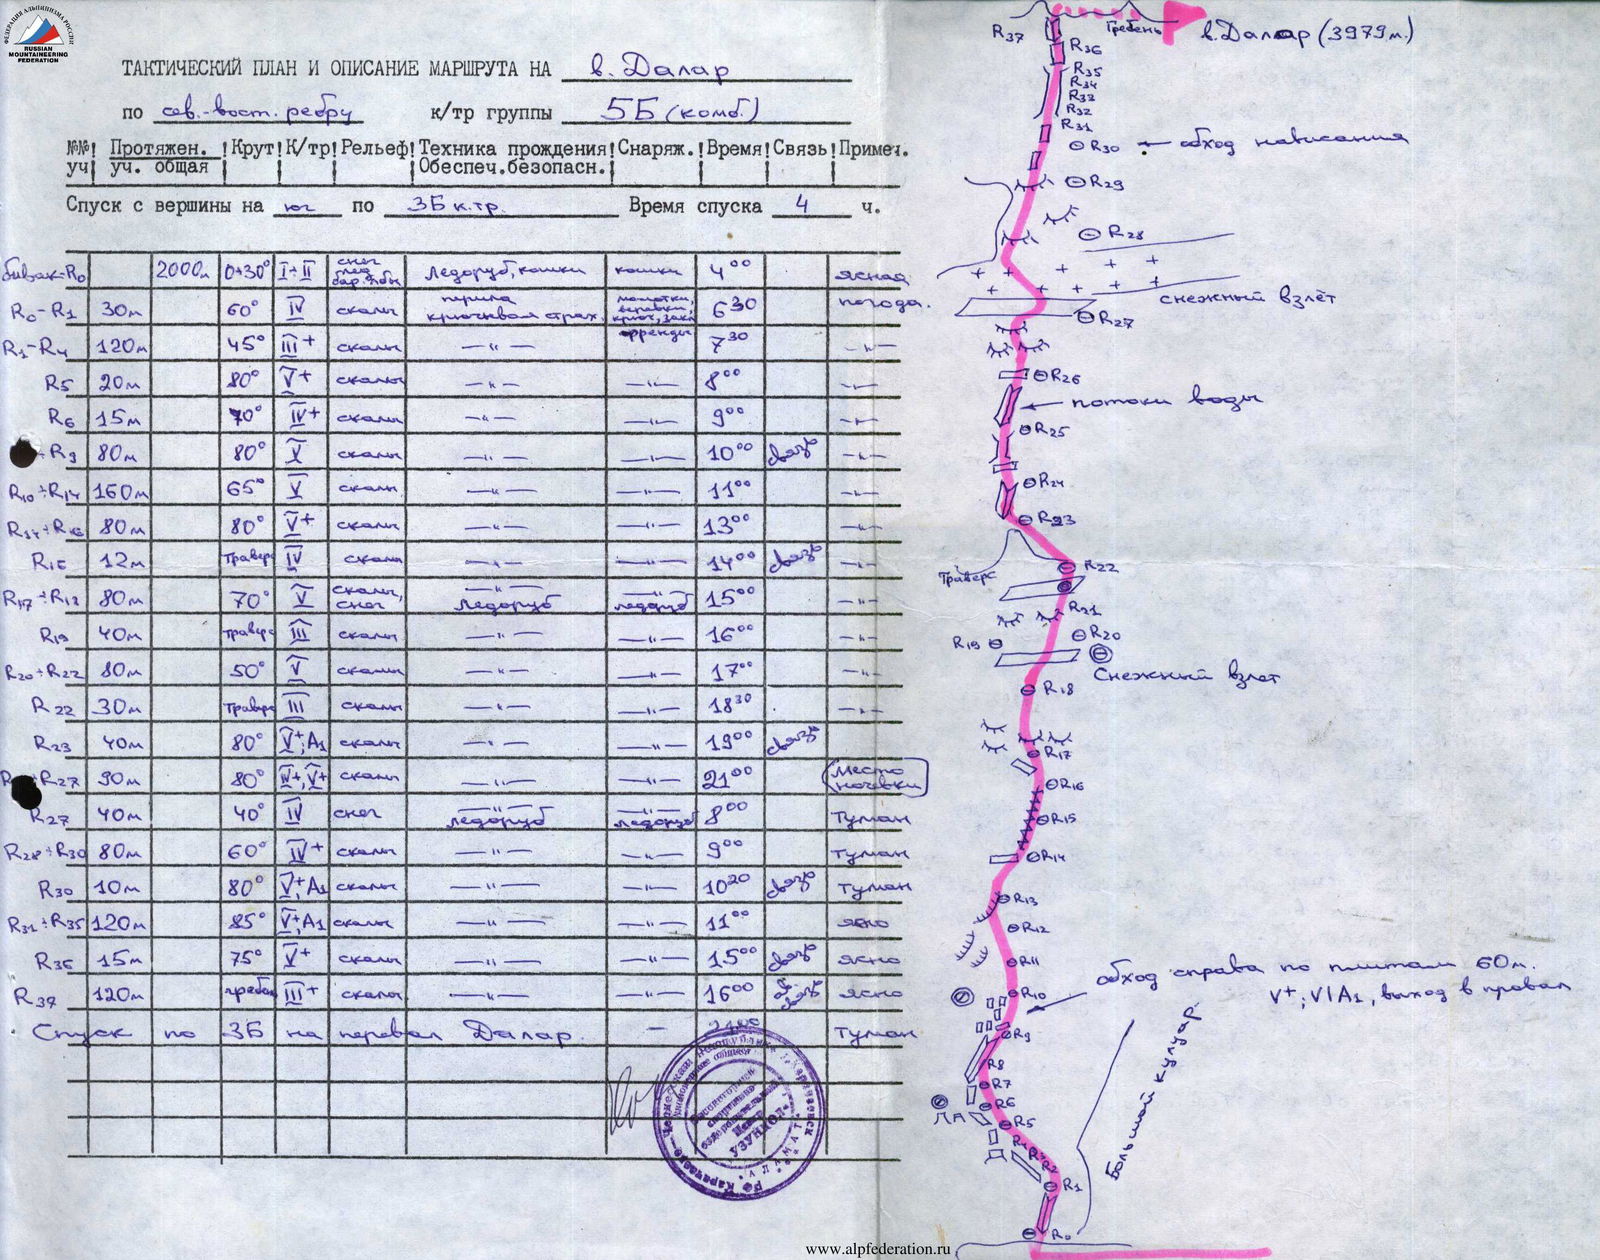 ФЕДЕРАЦИЯ АЛЬПИНИЗМА РОССИИ
RUSSIAN
MOUNTAINEERING
FEDERATION
ТАКТИЧЕСКИЙ ПЛАН И ОПИСАНИЕ МАРШРУТА НА в. Далар
по сев.-вост. ребру к/тр группы 5Б (комб.)
№№ уч! Протяжен. уч. общая ! Крут! К/тр! Рельеф! Техника прождения Обеспеч.безопасн. ! Снаряж.! Время! Связь! Примеч.
Спуск с вершины на юг по 3Б к.тр. Время спуска 4 ч.
бивак-R0 2000м 0÷30° I÷II снег лед Ледоруб, кошки кошки 4⁰⁰ ясная
R0-R1 30м 60° IV скалы перила крючьевая страх. 6³⁰ погода.
R1-R4 120м 45° III+ скалы —"— френды 7³⁰ —"—
R5 20м 80° V+ скалы —"— —"— 8⁰⁰ —"—
R6 15м 70° IV+ скалы —"— —"— 9⁰⁰ —"—
R9 80м 80° V скалы —"— —"— 10⁰⁰ связь —"—
R10÷R14 160м 65° V скалы —"— —"— 11⁰⁰ —"—
R14÷R16 80м 80° V+ скалы —"— —"— 13⁰⁰ —"—
R16 12м траверс IV скалы —"— —"— 14⁰⁰ связь —"—
R17÷R18 80м 70° V скалы, снег —"— ледоруб —"— ледоруб 15⁰⁰ —"—
R19 40м траверс III скалы —"— —"— 16⁰⁰ —"—
R20÷R22 80м 50° V скалы —"— —"— 17⁰⁰ —"—
R22 30м траверс III скалы —"— —"— 18³⁰ —"—
R23 40м 80° V+,A1 скалы —"— —"— 19⁰⁰ связь
R27 90м 80° IV+,V+ скалы —"— —"— 21⁰⁰ место ночевки
R27 40м 40° IV снег —"— ледоруб —"— ледоруб 8⁰⁰ туман
R28÷R30 80м 60° IV+ скалы —"— —"— 9⁰⁰ туман
R30 10м 80° V+,A1 скалы —"— —"— 10²⁰ связь туман
R31÷R35 120м 85° V+,A1 скалы —"— —"— 11⁰⁰ ясно
R36 15м 75° V+ скалы —"— —"— 15⁰⁰ связь ясно
R37 120м гребень III+ скалы —"— —"— 16⁰⁰ связь ясно
Спуск по 3Б на перевал Далар. — туман
УЗУНКОЛ
R37
Гребень
в.Далар (3979м.)
R36
R35
R34
R33
R32
R31
R30 ← обход нависания
R29
R28
снежный взлёт
R27
R26
потоки воды
R25
R24
R23
Траверс
R22
R21
R19
R20
Снежный взлёт
R18
R17
R16
R15
R14
R13
R12
R11
R10
обход справа по плитам 60м.
V+; VI A1, выход в провал
R9
R8
R7
R6
R5
R4
R3
R2
R1
Большой кулуар
R0
www.alpfederation.ru